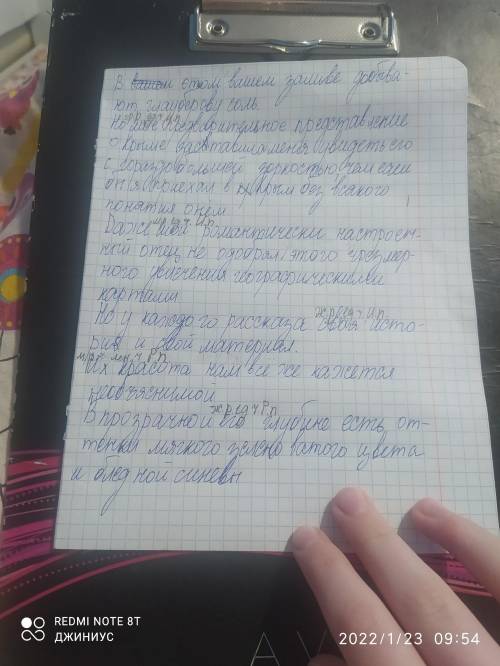 В этом вашем заливе добыва-
ют глауберову соль.
Но моё предварительное представление
о Крыме заставило меня увидеть его
с гораздо большей зоркостью чем если
бы я приехал в Крым без всякого
понятия о нём
Даже мой романтически настроен-
ный отец не одобрял этого чрезмер-
ного увлечения географическими
картами
ж р ед ч И п
Но у каждого рассказа своя исто-
рия и свой материал.
мн ч Р п
Их красота нам все же кажется
необъяснимой
ж р ед ч Р п
В прозрачной его глубине есть от-
тенки мягкого зелено ватого цвета
и бледной синевы
REDMI NOTE 8T
ДЖИНИУС
2022/1/23 09:54